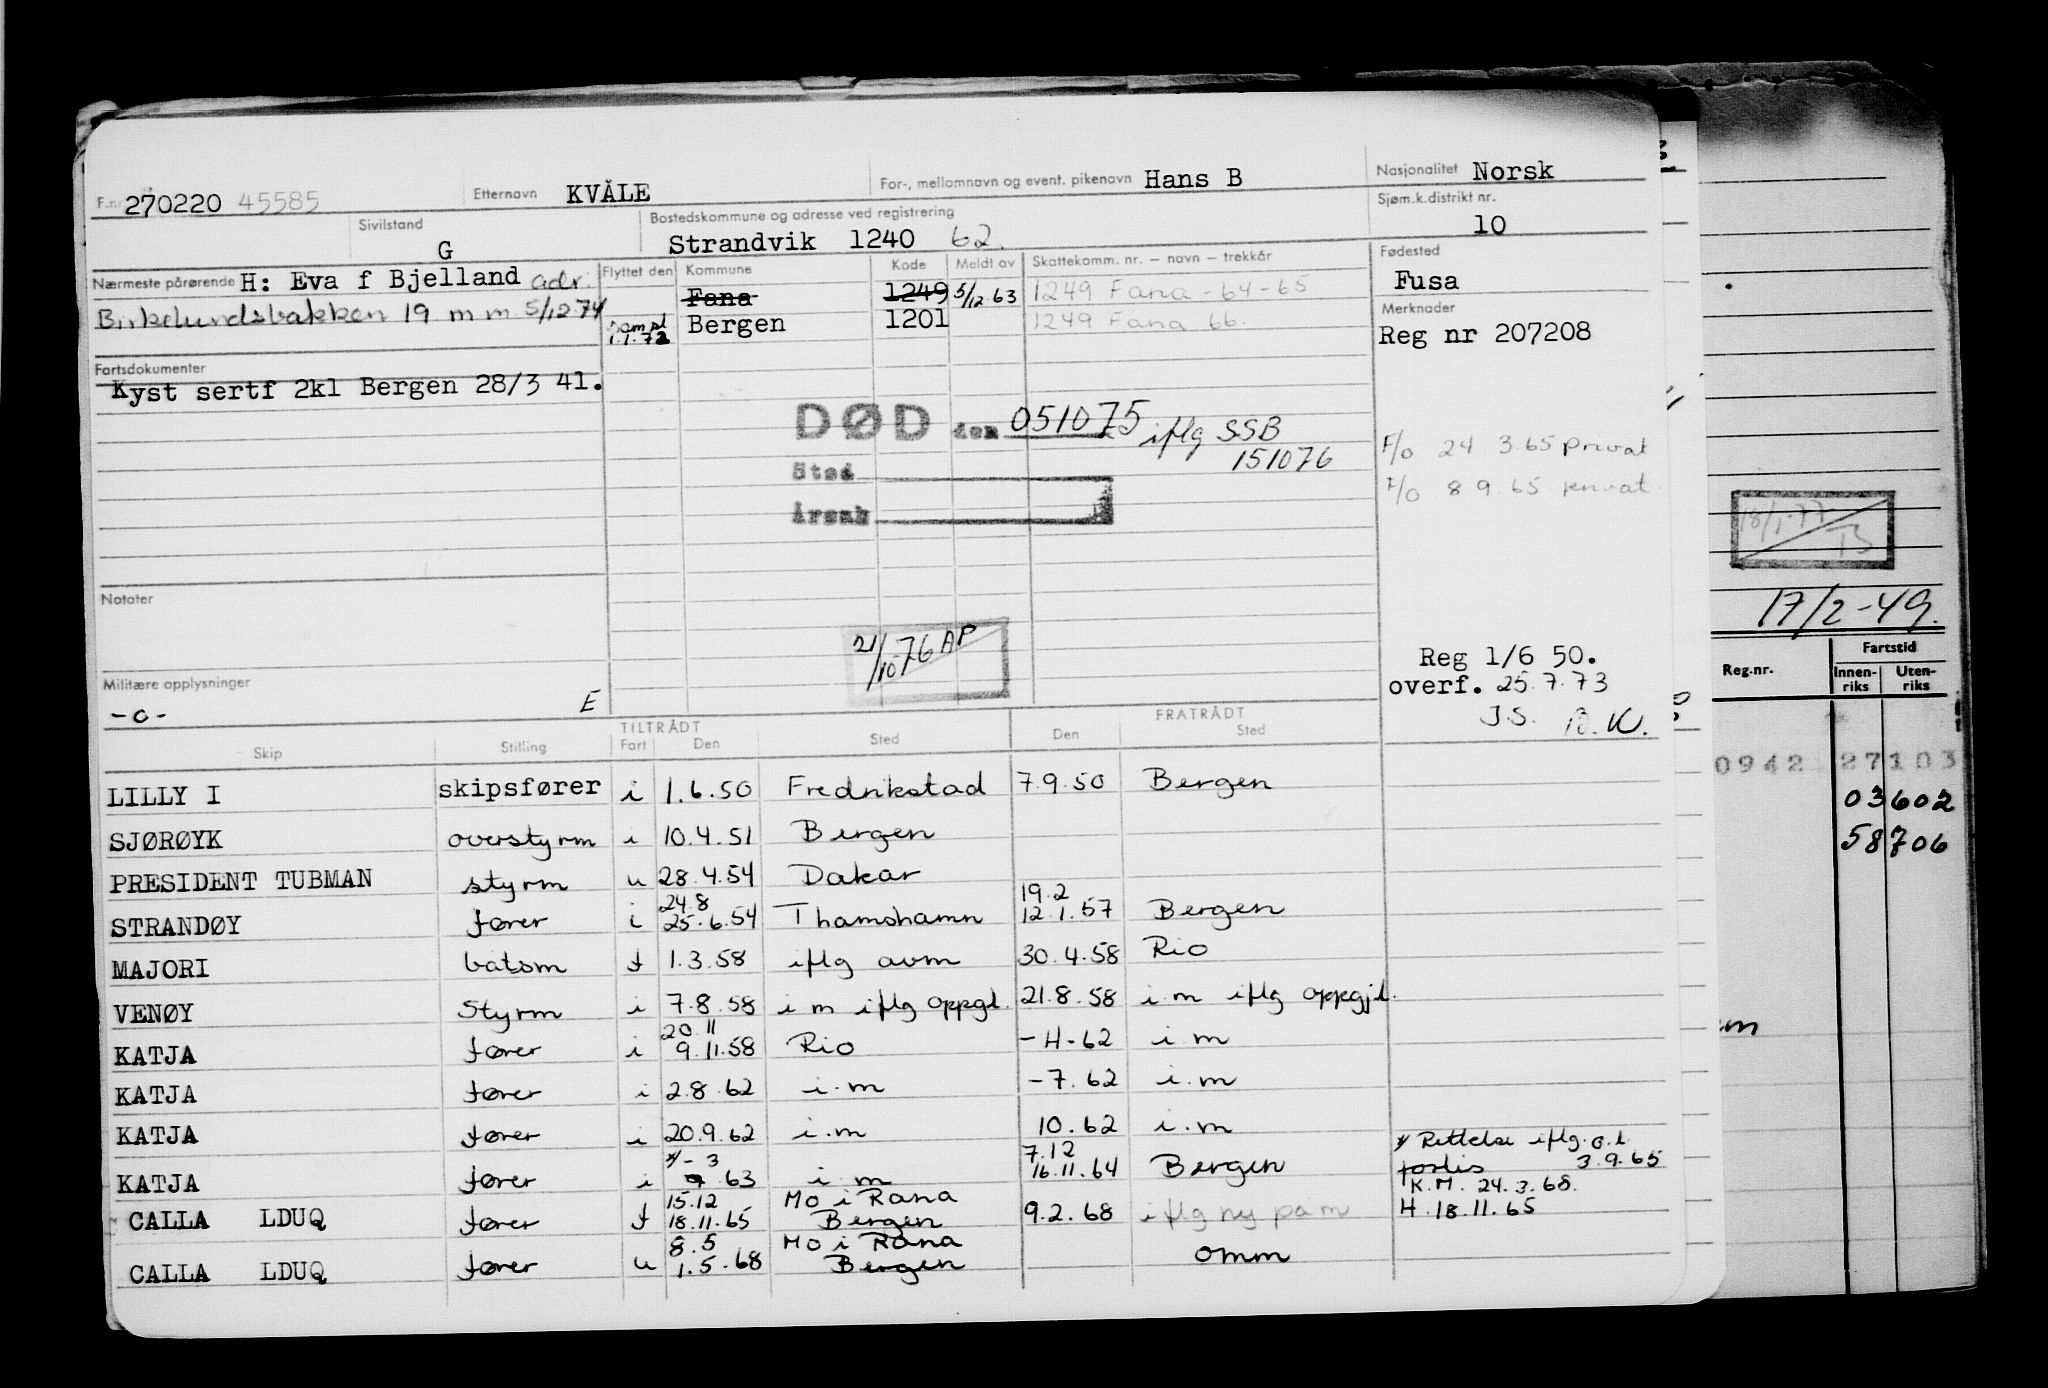 F.nr. 270220 45585 Etternavn KVÅLE For-, mellomnavn og event. pikenavn Hans B Nasjonalitet Norsk
Sivilstand G Bostedskommune og adresse ved registrering Strandvik 1240 62. Sjøm.k.distrikt nr. 10
Nærmeste pårørende H: Eva f Bjelland adr. Flyttet den Kommune Kode Meldt av Skattekomm. nr. — navn — trekkår Fødested
Fana 1249 5/12 63 1249 Fana - 64-65 Fusa
Birkelundsbakken 19 m m 5/12 74 1.1.72 Bergen 1201 1249 Fana 66. Merknader
Reg nr 207208
Fartsdokumenter
Kyst sertf 2kl Bergen 28/3 41.
DØD den 051075 iflg SSB
151076
F/o 24 3.65 privat
Sted
F/o 8 9.65 privat
Årsak
18/1-77
TS
17/2-49.
Notater
21/10-76 AP
Reg 1/6 50.
overf. 25.7.73
J.S. B.K.
Militære opplysninger
-o- E
Reg.nr. Fartstid
Innen-riks Uten-riks
TILTRÅDT FRATRÅDT
Skip Stilling Fart Den Sted Den Sted
0942 27103
03602
58706
LILLY I skipsfører i 1.6.50 Fredrikstad 7.9.50 Bergen
SJØRØYK overstyrm i 10.4.51 Bergen
PRESIDENT TUBMAN styrm u 28.4.54 Dakar
24.8 19.2
STRANDØY fører i 25.6.54 Thamshamn 12.1.57 Bergen
MAJORI båtsm f 1.3.58 iflg avm 30.4.58 Rio
VENØY styrm i 7.8.58 i m iflg oppgl. 21.8.58 i m iflg oppgjl.
20.11
KATJA fører i 9.11.58 Rio -4-62 i m
KATJA fører i 2.8.62 i.m -7.62 i.m
KATJA fører i 20.9.62 i.m 10.62 i.m
x/ Rettelse iflg. o.l.
x/- 3 7.12
KATJA fører i 63 i m 16.11.64 Bergen
3.9.65
K.M. 24.3.68.
15.12 Mo i Rana
CALLA LDUQ fører f 18.11.65 Bergen 9.2.68 iflg ny på m H.18.11.65
8.5 Mo i Rana
CALLA LDUQ fører u 1.5.68 Bergen omm